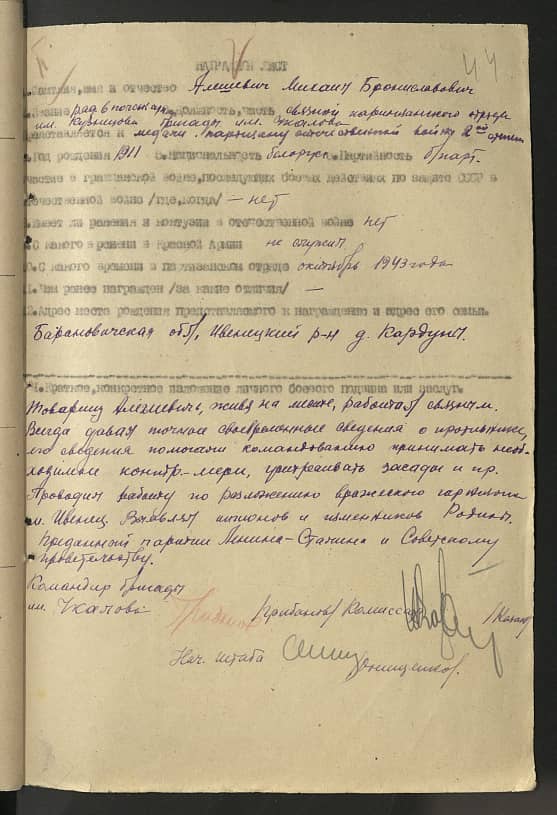 44
НАГРАДНОЙ ЛИСТ
1. Фамилия, имя и отчество Алешевич Михаил Брониславович
2. Звание рядв почжар 3. Должность, часть связной партизанского отряда
им. Кузнецова бригады им. Чкалова
Представляется к медали "Партизану отечественной войны 2ой степени
4. Год рождения 1911 5. Национальность белорус 6. Партийность б/парт.
участие в гражданской войне, последующих боевых действиях по защите СССР и
отечественной войне /где, когда/ – нет
8. Имеет ли ранения и контузии в отечественной войне нет
9. С какого времени в Красной Армии не служил
10. С какого времени в партизанском отряде октябрь 1943 года
11. Чем ранее награжден /за какие отличия/ –
12. Адрес место рождения представляемого к награждению и адрес его семьи.
Барановичская обл, Ивенецкий р-н д. Кардуны.
1. Краткое, конкретное изложение личного боевого подвига или заслуг.
Товарищ Алешевич, живя на месте, работал связным.
Всегда давал точные своевременные сведения о противнике,
его сведения помогали командованию принимать необ-
ходимые контр-меры, устраивать засады и пр.
Проводил работу по разложению вражеского гарнизона
м. Ивенец. Выявлял шпионов и изменников Родины.
Преданный партии Ленина-Сталина и Советскому
правительству.
Командир бригады
им. Чкалова Грибанов Комиссар /Казак
Нач. штаба Онищенков.